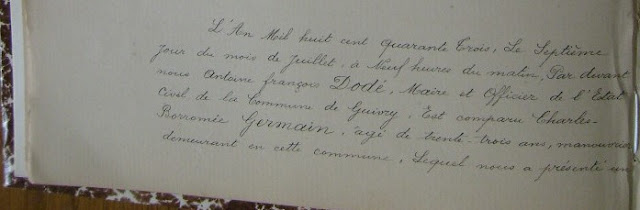 L'An Mil huit cent quarante Trois, Le Septième
jour du mois de Juillet, à Neuf heures du matin, Par devant
nous Antoine françois Dodé, Maire et Officier de l'Etat
Civil de la Commune de Guivry, Est comparu Charles-
Borromée Germain, âgé de trente-trois ans, manouvrier,
demeurant en cette commune, Lequel nous a présenté un